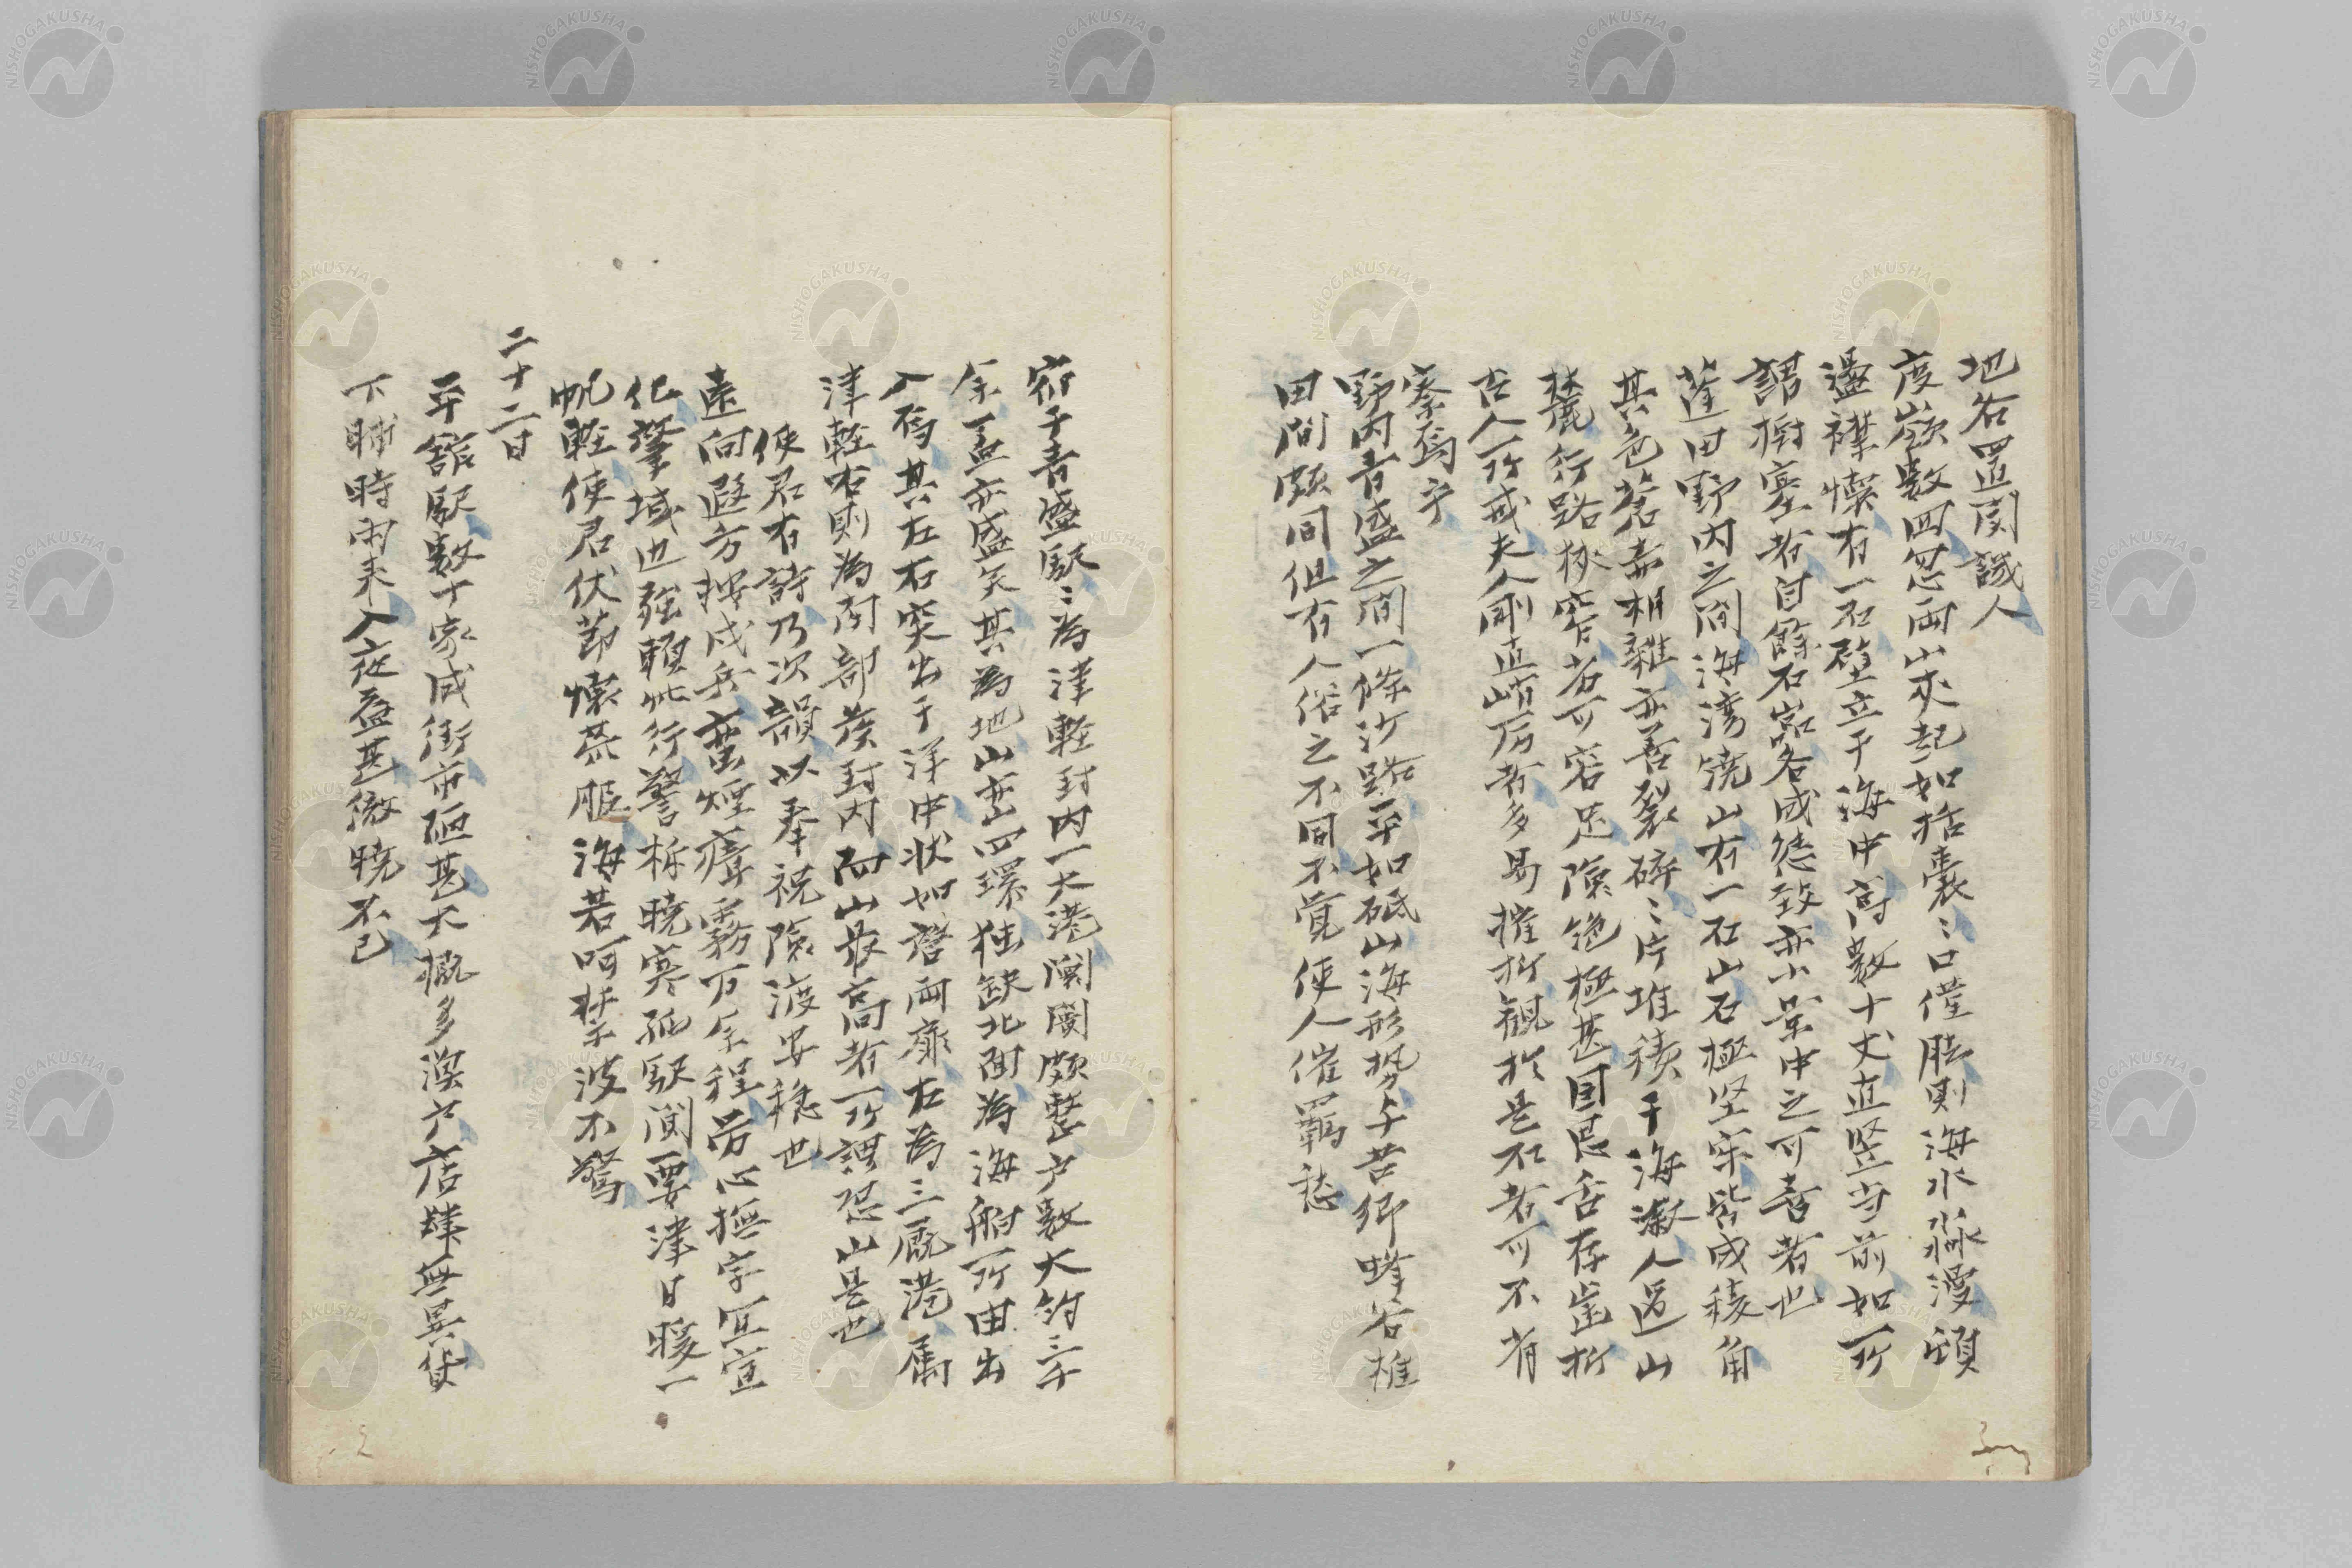 地名置関譏人
度嶺數四忽両山夾起如括囊〻口僅脱則海水淼漫頓
盪襟懐有一石壁立于海中高數十丈直竪当前如所
謂樹塞者自餘石嵓各成態致亦小景中之可喜者也
蓬田野内之間海湾繞山有一石山石極堅牢皆成稜角
其色蒼赤相雑亦善裂碎〻片堆積于海漵人過山
麓行路狭窄苟可容足険絶極甚因思舌存歯折
古人所戒夫人剛直峭厉者多易摧折観於是石者可不有
察焉乎
野内青盛之間一條沙路平如砥山海形勢与吾郷蜂谷椎
田間頗同但有人俗之不同不覚使人催羈愁
宿于青盛駅〻為津軽封内一大港闤闠頗整户數大約三千
余盖亦盛矣其為地山巒四環独缺北陬為海舶所由出
入焉其左右突出于洋中状如啓両扉左為三厩港属
津軽右則為南部侯封内而山最高者所謂恐山是也
使君有詩乃次韻以奉祝険渡安穏也
遠向遐方按戍兵蛮煙瘴霧万余程労心撫字宜宣
化挙域也強頼此行警柝暁寒孤駅関要津日暖一
帆軽使君伏節懐恭服海若呵禁波不驚
二十二日
平舘駅數十家成街市陋甚大概多漁户店肆無異貨
下晡時雨来入夜益甚徹暁不已
NISHOGAKUSHA